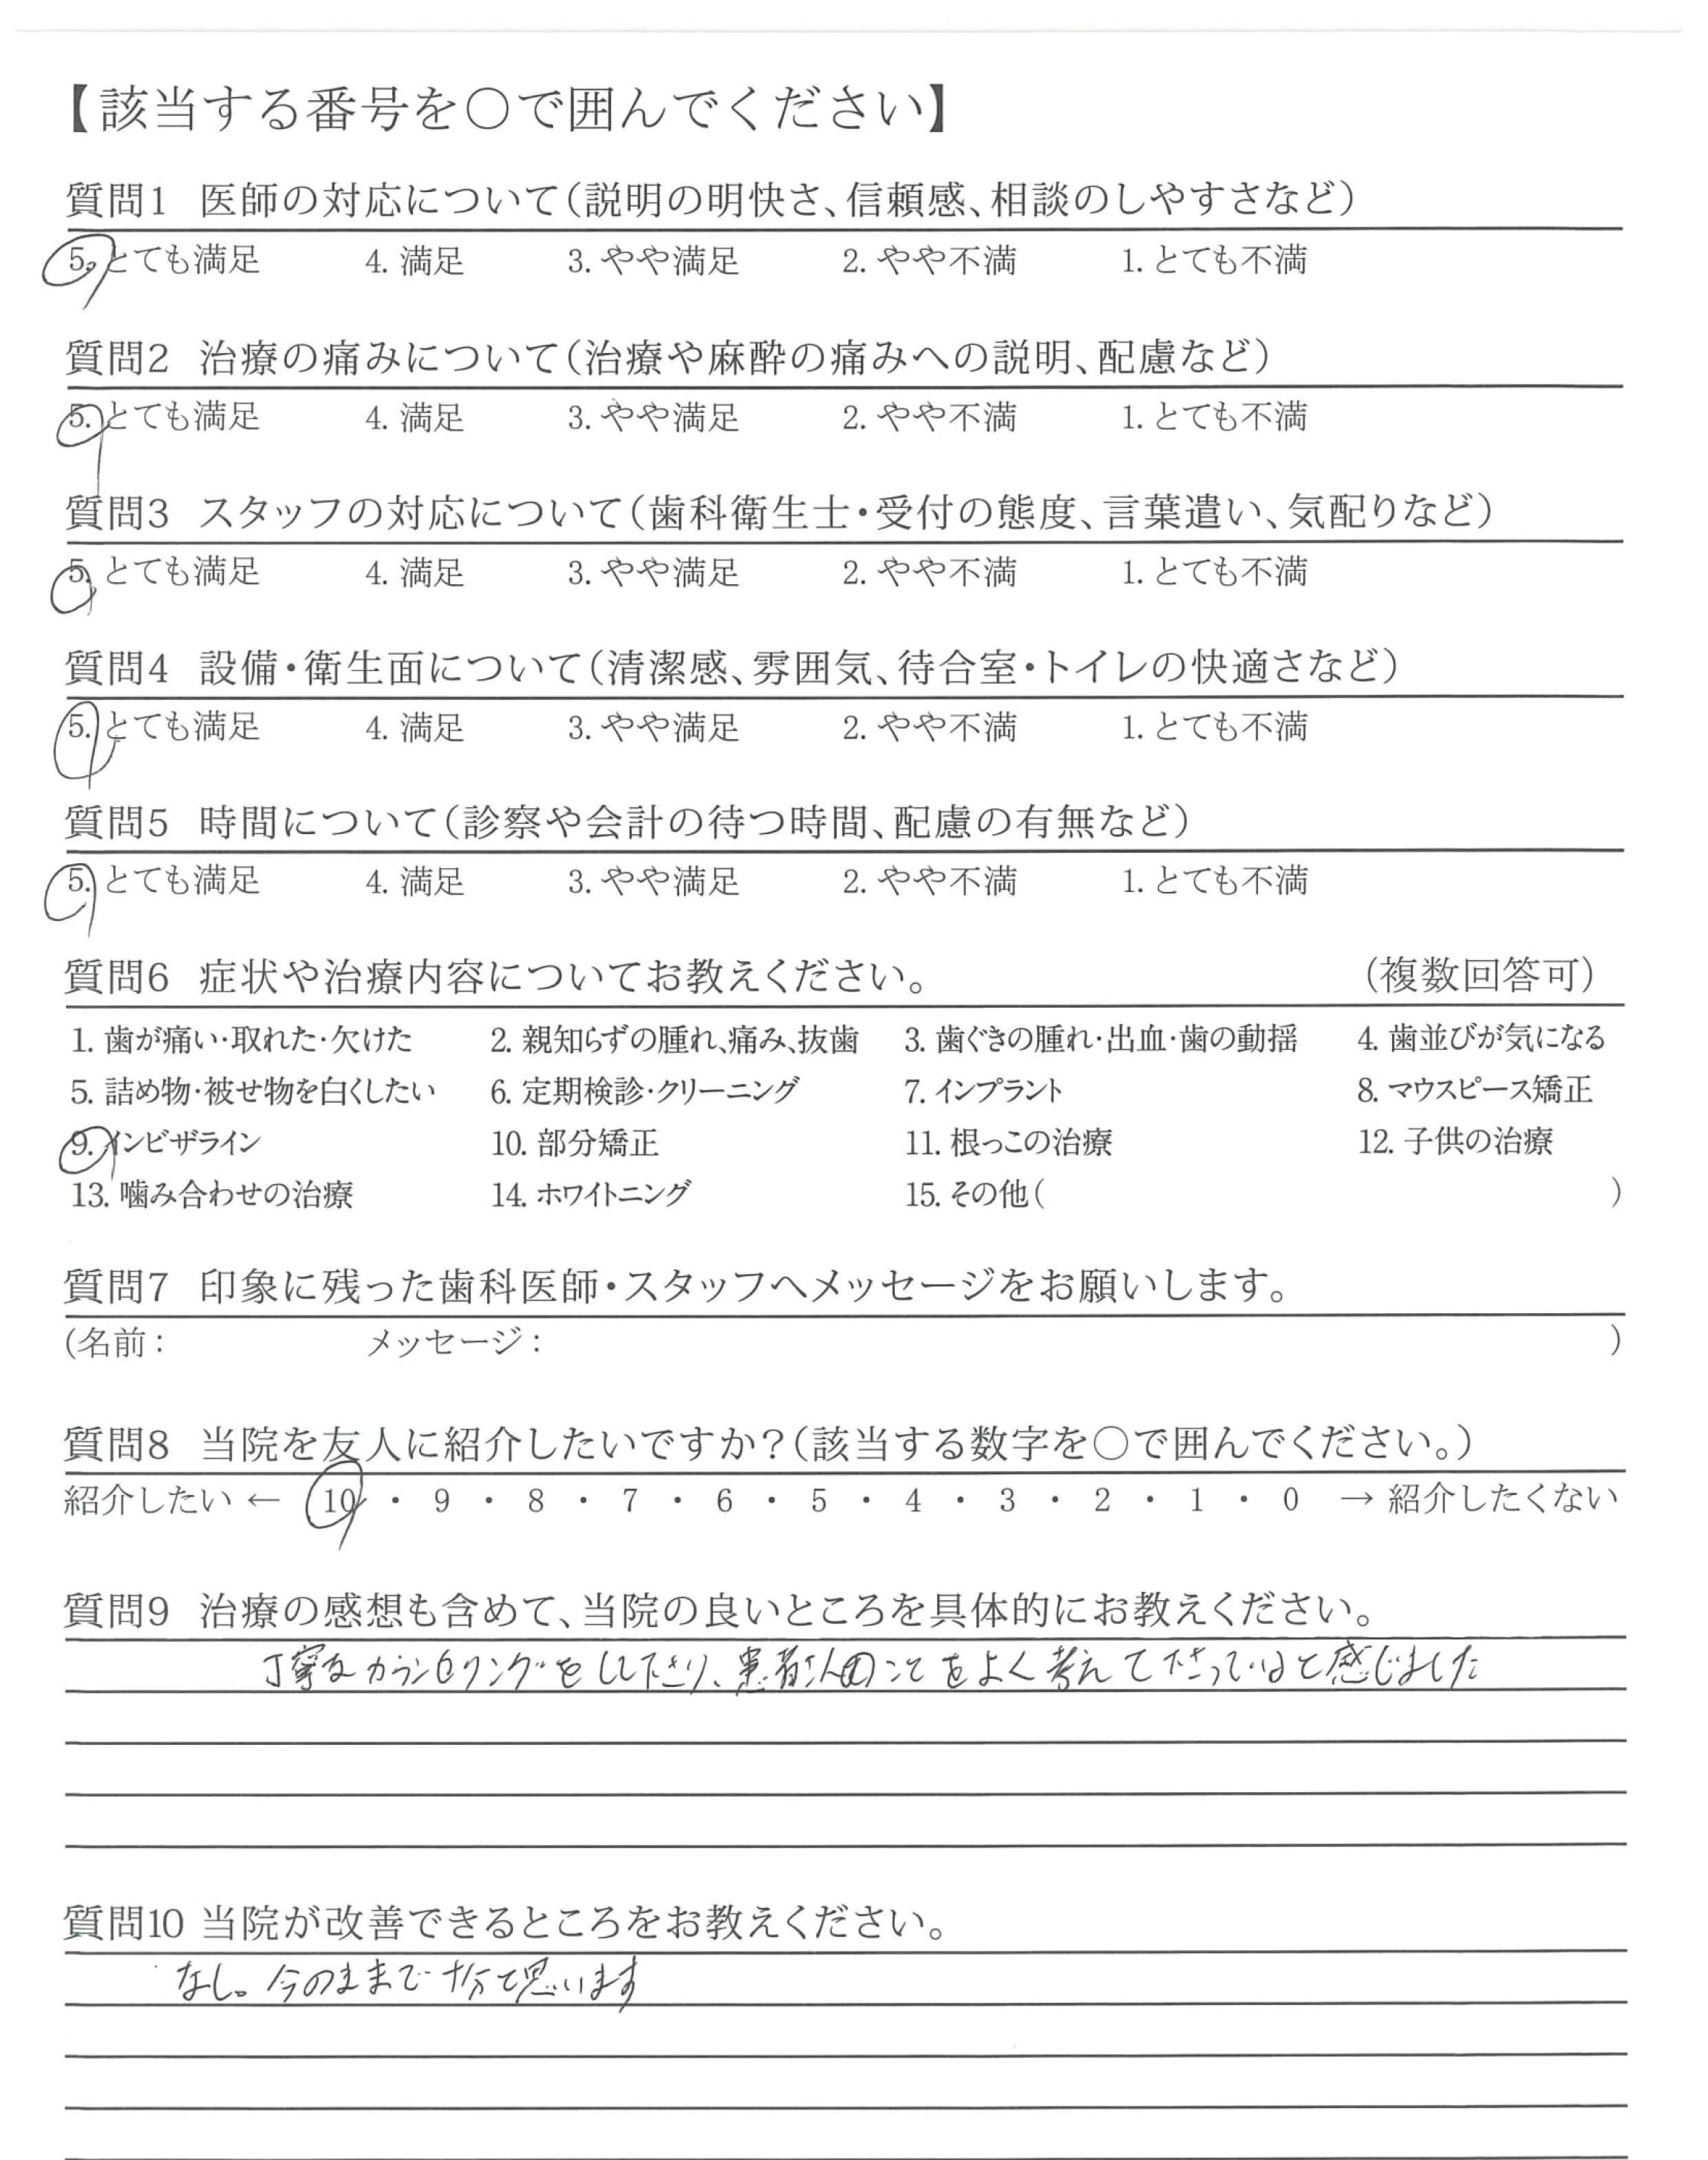 【該当する番号を○で囲んでください】
質問1 医師の対応について(説明の明快さ、信頼感、相談のしやすさなど)
5. とても満足 4. 満足 3. やや満足 2. やや不満 1. とても不満
質問2 治療の痛みについて(治療や麻酔の痛みへの説明、配慮など)
5. とても満足 4. 満足 3. やや満足 2. やや不満 1. とても不満
質問3 スタッフの対応について(歯科衛生士・受付の態度、言葉遣い、気配りなど)
5. とても満足 4. 満足 3. やや満足 2. やや不満 1. とても不満
質問4 設備・衛生面について(清潔感、雰囲気、待合室・トイレの快適さなど)
5. とても満足 4. 満足 3. やや満足 2. やや不満 1. とても不満
質問5 時間について(診察や会計の待つ時間、配慮の有無など)
5. とても満足 4. 満足 3. やや満足 2. やや不満 1. とても不満
質問6 症状や治療内容についてお教えください。 (複数回答可)
1. 歯が痛い・取れた・欠けた 2. 親知らずの腫れ、痛み、抜歯 3. 歯ぐきの腫れ・出血・歯の動揺 4. 歯並びが気になる
5. 詰め物・被せ物を白くしたい 6. 定期検診・クリーニング 7. インプラント 8. マウスピース矯正
9. インビザライン 10. 部分矯正 11. 根っこの治療 12. 子供の治療
13. 噛み合わせの治療 14. ホワイトニング 15. その他( )
質問7 印象に残った歯科医師・スタッフへメッセージをお願いします。
(名前: メッセージ: )
質問8 当院を友人に紹介したいですか?(該当する数字を○で囲んでください。)
紹介したい ← 10 ・ 9 ・ 8 ・ 7 ・ 6 ・ 5 ・ 4 ・ 3 ・ 2 ・ 1 ・ 0 → 紹介したくない
質問9 治療の感想も含めて、当院の良いところを具体的にお教えください。
丁寧なカウンセリングをして下さり、患者さんのことをよく考えて下さっていると感じました
質問10 当院が改善できるところをお教えください。
なし。今のままで十分と思います